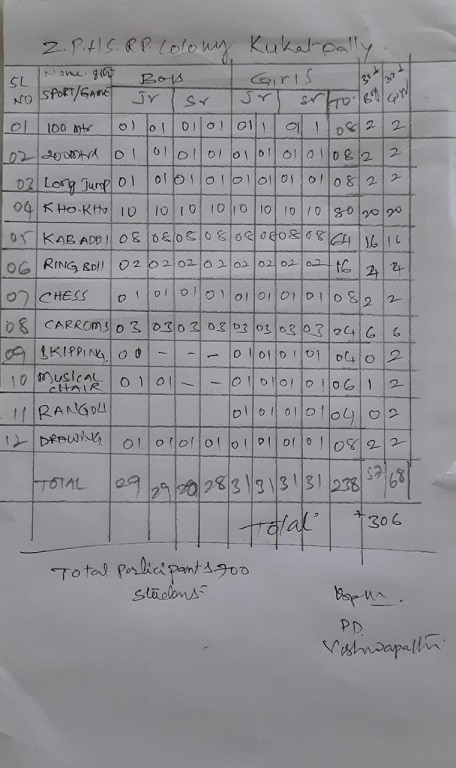 Z.P.H.S. R.P. Colony Kukatpally
SL NO Name of the SPORT/GAME Boys Girls TO 3rd 3rd Girl
Jr Sr Jr Sr
01 100 mtr 01 01 01 01 01 1 01 1 08 2 2
02 200mtrs 01 01 01 01 01 01 01 01 08 2 2
03 Long Jump 01 01 01 01 01 01 01 01 08 2 2
04 KHO-KHO 10 10 10 10 10 10 10 10 80 20 20
05 KABADDI 08 08 08 08 08 08 08 08 64 16 16
06 RING Ball 02 02 02 02 02 02 02 02 16 4 4
07 CHESS 01 01 01 01 01 01 01 01 08 2 2
08 CARROMS 03 03 03 03 03 03 03 03 24 6 6
09 SKIPPING 00 - - - 01 01 01 01 04 0 2
10 MUSICAL CHAIR 01 01 - - 01 01 01 01 06 1 2
11 RANGOLI 01 01 01 01 04 0 2
12 DRAWING 01 01 01 01 01 01 01 01 08 2 2
TOTAL 29 29 28 28 31 31 31 31 238 57 68
Total 306
Total participants 900
Students
PD